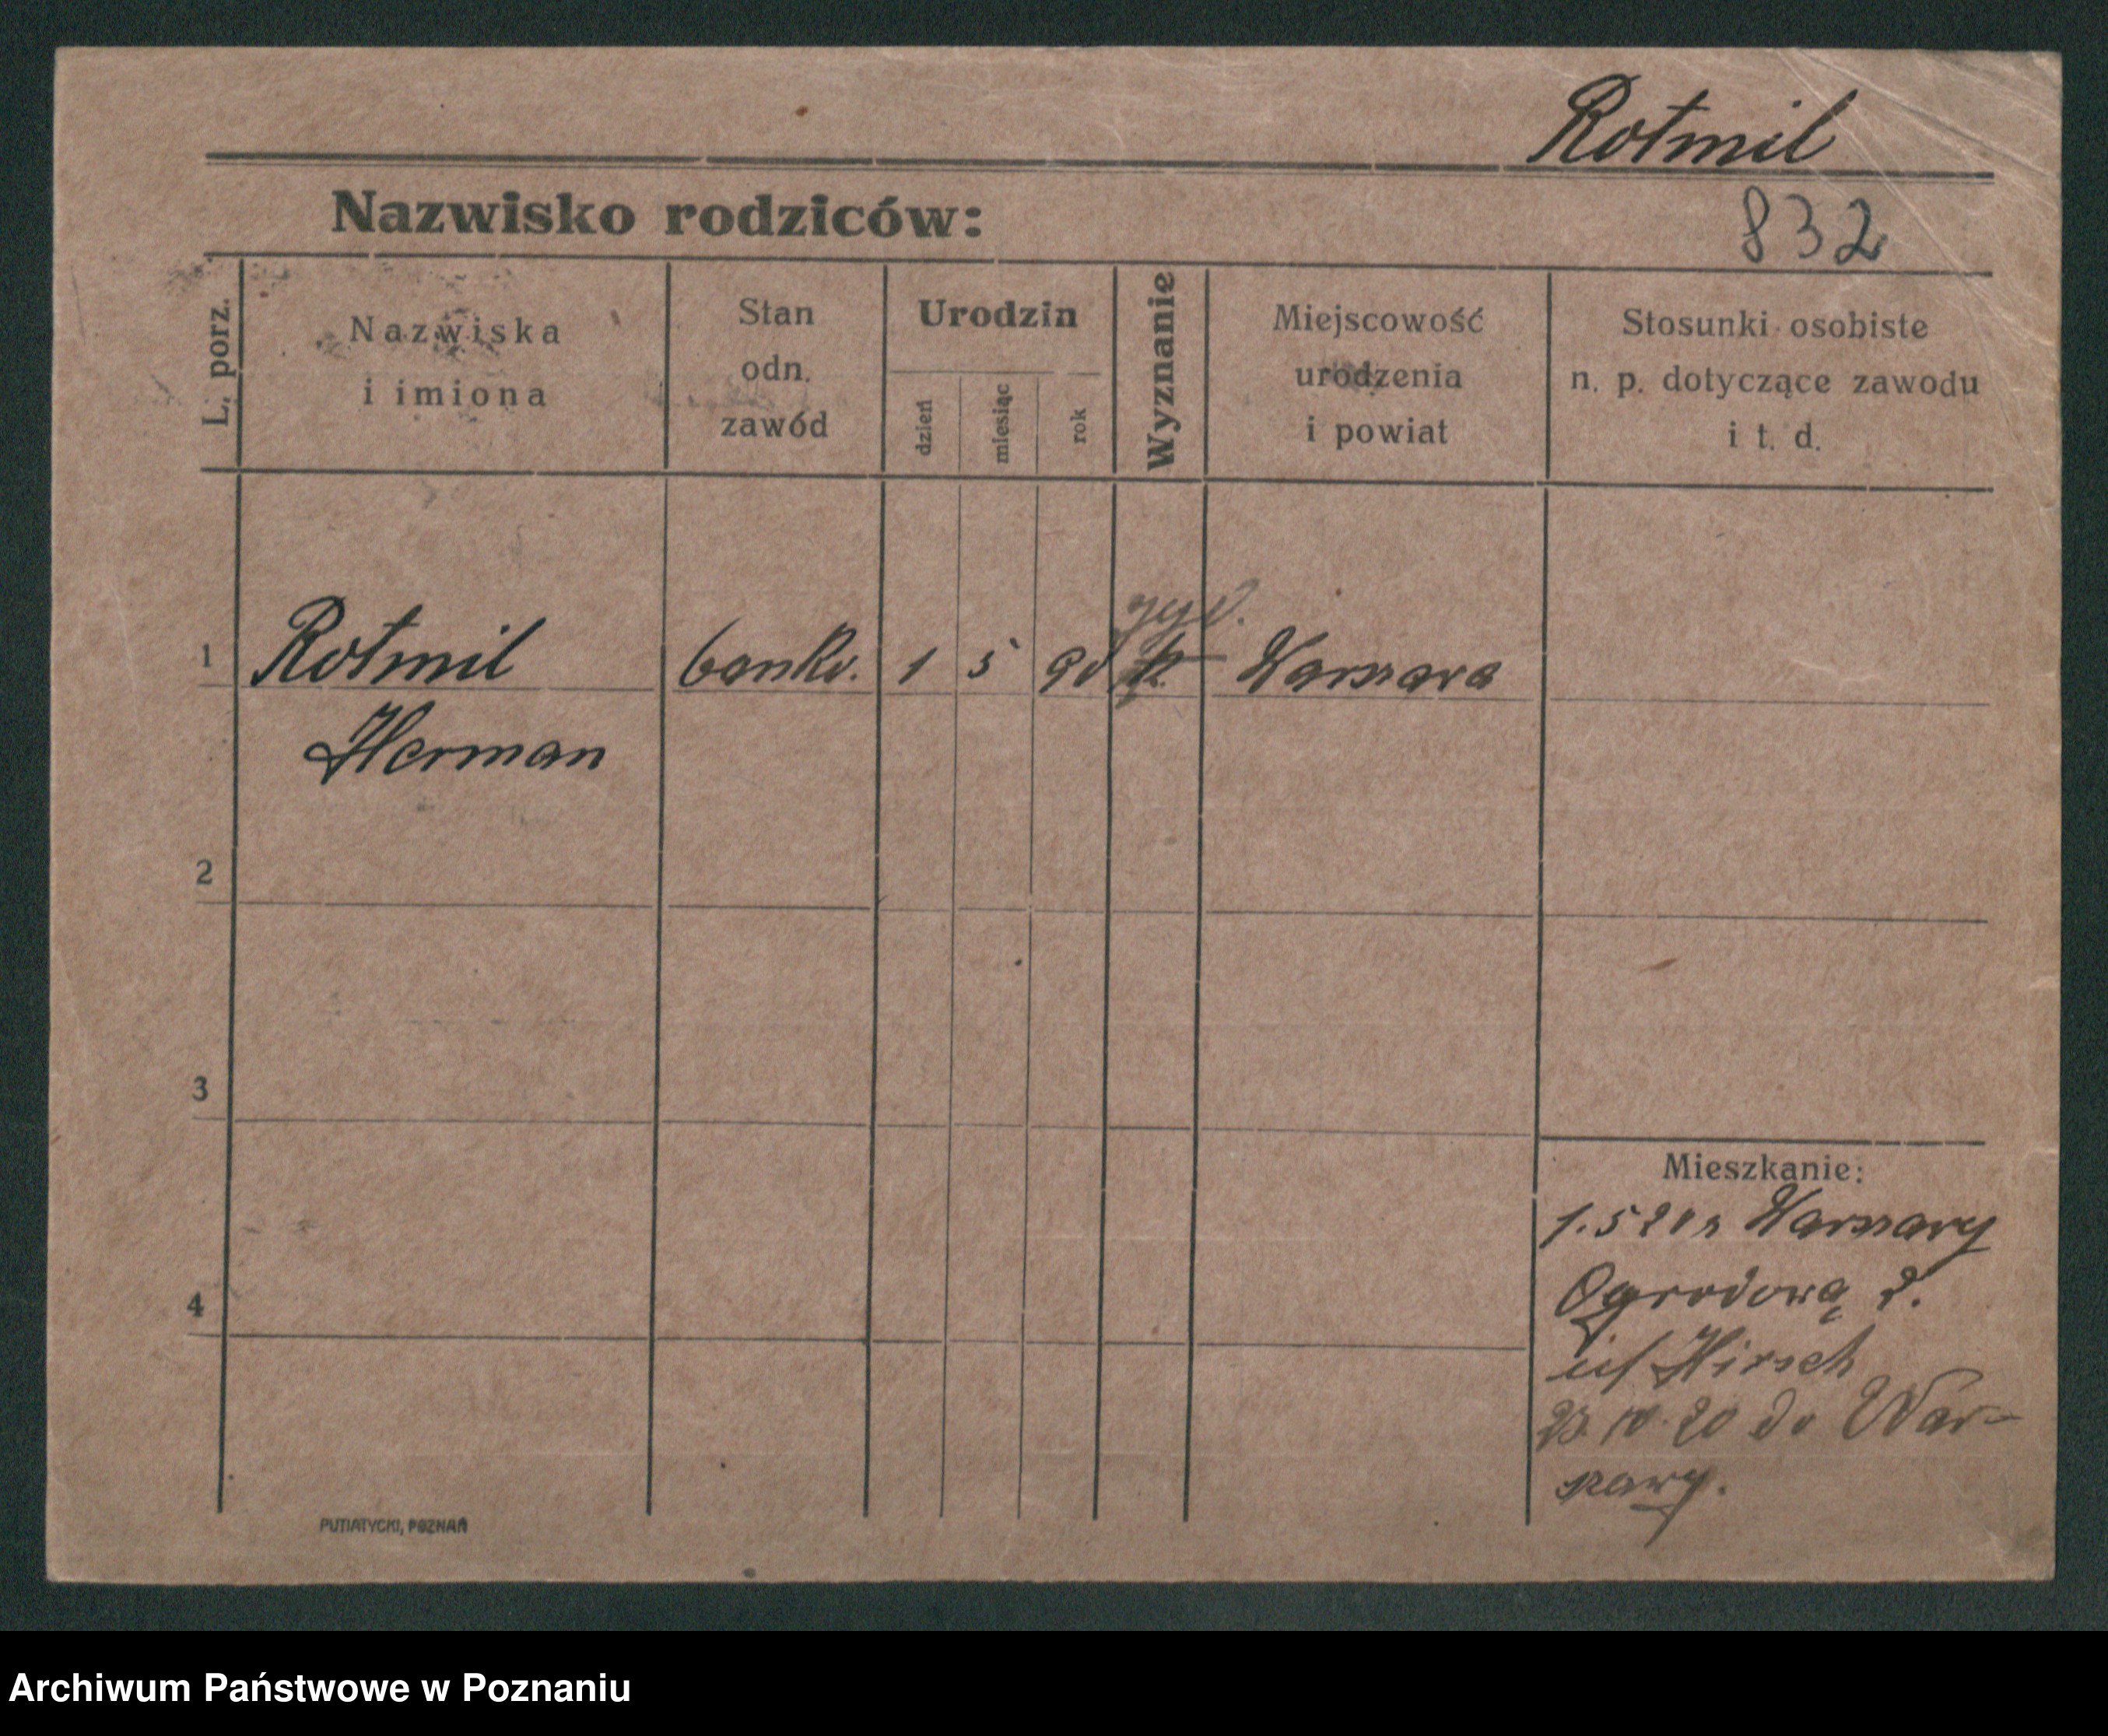 Rotmil
Nazwisko rodziców:
832
L. porz.
Nazwiska
i imiona
Stan
odn.
zawód
Urodzin
dzień
miesiąc
rok
Wyznanie
Miejscowość
urodzenia
i powiat
Stosunki osobiste
n. p. dotyczące zawodu
i t. d.
żyd.
1 Rotmil bankv. 1 5 90 Warszawa
Herman
2
3
4
Mieszkanie:
1.5 20 z Warszawy
Ogrodową
Hirsch
20 do War-
szawy.
PUTIATYCKI, POZNAŃ
Archiwum Państwowe w Poznaniu